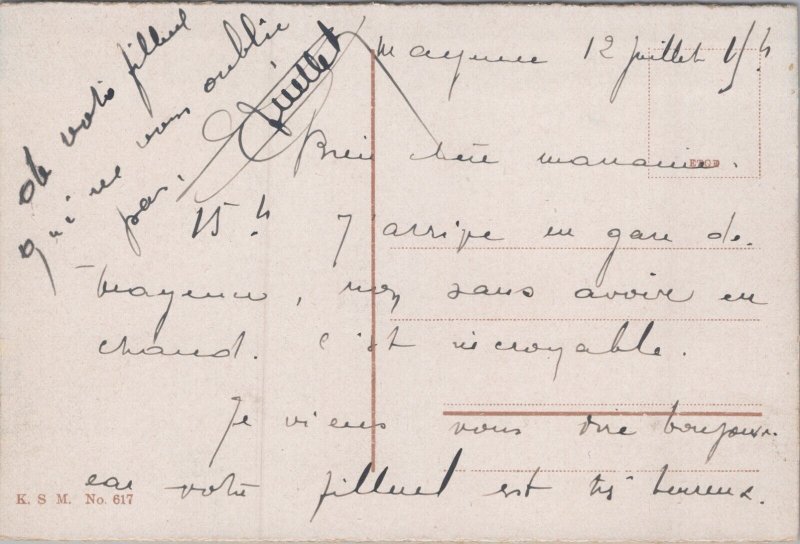 Mayence 12 juillet 15 h
Bien chère marraine.
15 h J'arrive en gare de
Mayence, non sans avoire eu
chaud. C'est incroyable.
Je viens vous dire bonjour
car votre filleul est très heureux.
de votre filleul
qui ne vous oublie
pas.
Juillet
ETOD
K. S M. No. 617